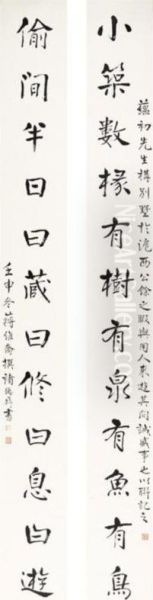 小築數椽有樹有泉有魚有鳥
蘊初先生構別墅於滬西公餘之暇與同人來遊其間誠盛事也以聯記之
偷閒半日曰藏曰修曰息曰遊
壬申冬蔣維喬撰諸德彝書